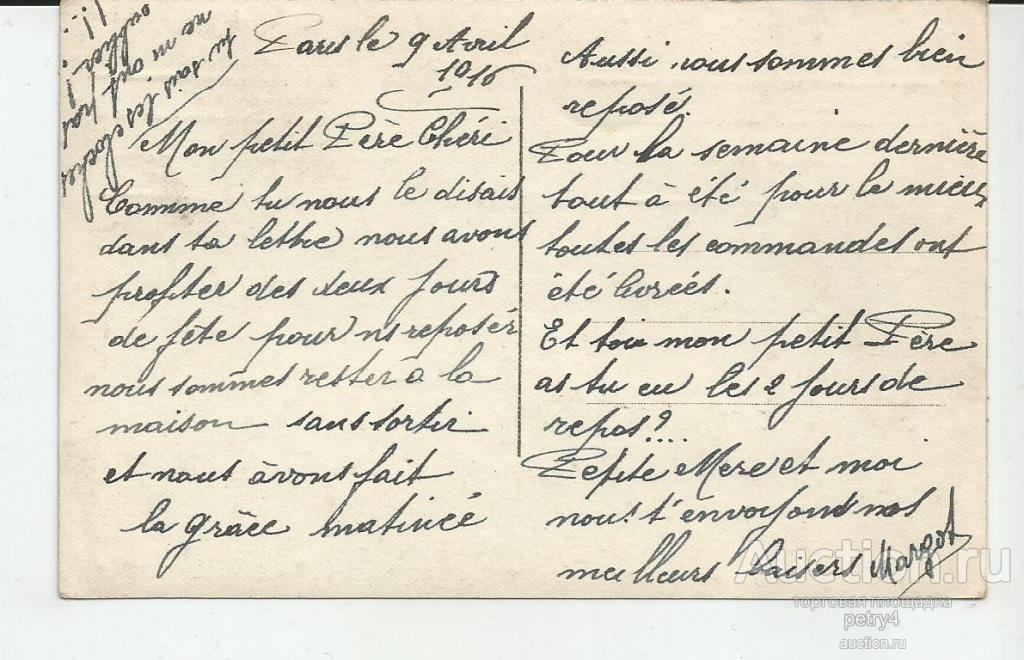 Paris le 9 Avril
1916
Mon petit Père Chéri
Comme tu nous le disais
dans ta lettre nous avons
profiter des deux jours
de fête pour ns reposér
nous sommes rester à la
maison sans sortir
et nous àvons fait
la grâce matinée
Aussi nous sommes bien
reposé.
Pour la semaine dernière
tout à été pour le mieux
toutes les commandes ont
été livrées.
Et toi mon petit Père
as tu eu les 2 jours de
repos?....
Petite Mere et moi
nous t'envoyons nos
meilleurs baisers Margot
tu sais les cloches
ne m ont pas
oublier!
!!
Auction.ru
торговая площадка
petry4
auction.ru